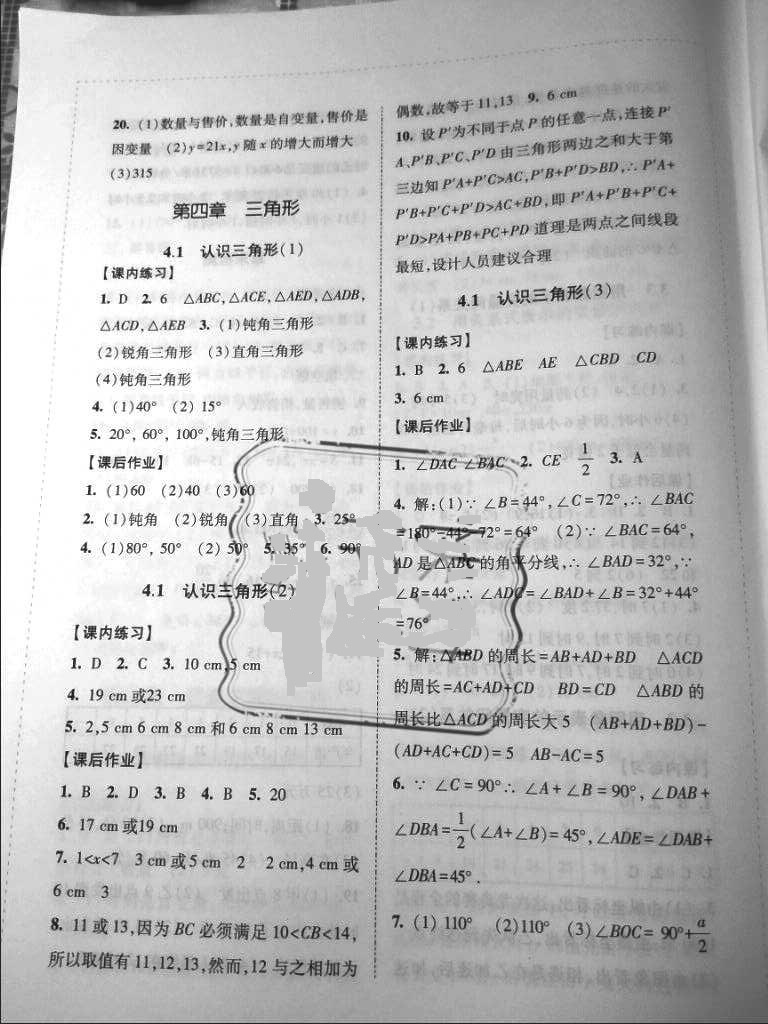 20. (1)数量与售价,数量是自变量,售价是
因变量 (2)y=21x,y 随 x 的增大而增大
(3)315
第四章 三角形
4.1 认识三角形(1)
【课内练习】
1. D 2. 6 △ABC,△ACE,△AED,△ADB,
△ACD,△AEB 3. (1)钝角三角形
(2)锐角三角形 (3)直角三角形
(4)钝角三角形
4. (1)40° (2) 15°
5. 20°, 60°, 100°,钝角三角形
【课后作业】
1. (1)60 (2)40 (3)60
2. (1)钝角 (2)锐角 (3)直角 3. 25°
4. (1)80°, 50° (2) 50° 5. 35° 6. 90°
4.1 认识三角形(2)
【课内练习】
1. D 2. C 3. 10 cm,5 cm
4. 19 cm 或23 cm
5. 2,5 cm 6 cm 8 cm 和 6 cm 8 cm 13 cm
【课后作业】
1. B 2. D 3. B 4. B 5. 20
6. 17 cm 或19 cm
7. 1<x<7 3 cm 或 5 cm 2 2 cm,4 cm 或
6 cm 3
8. 11 或 13,因为 BC 必须满足 10<CB<14,
所以取值有 11,12,13,然而,12 与之相加为
偶数,故等于 11,13 9. 6 cm
10. 设 P′为不同于点 P 的任意一点,连接 P′
A、P′B、P′C、P′D 由三角形两边之和大于第
三边知 P′A+P′C>AC,P′B+P′D>BD,∴ P′A+
P′B+P′C+P′D>AC+BD,即 P′A+P′B+P′C+
P′D>PA+PB+PC+PD 道理是两点之间线段
最短,设计人员建议合理
4.1 认识三角形(3)
【课内练习】
1. B 2. 6 △ABE AE △CBD CD
3. 6 cm
【课后作业】
1. ∠DAC ∠BAC 2. CE 1/2 3. A
4. 解:(1)∵ ∠B=44°,∠C=72°,∴ ∠BAC
=180°-44°-72°=64° (2)∵ ∠BAC=64°,
AD 是△ABC 的角平分线,∴ ∠BAD=32°,∵
∠B=44°,∴ ∠ADC=∠BAD+∠B=32°+44°
=76°
5. 解:△ABD 的周长=AB+AD+BD △ACD
的周长=AC+AD+CD BD=CD △ABD 的
周长比△ACD 的周长大 5 (AB+AD+BD)-
(AD+AC+CD)=5 AB-AC=5
6. ∵ ∠C=90°∴ ∠A+∠B=90°,∠DAB+
∠DBA=1/2(∠A+∠B)=45°,∠ADE=∠DAB+
∠DBA=45°.
7. (1) 110° (2)110° (3)∠BOC= 90°+a/2